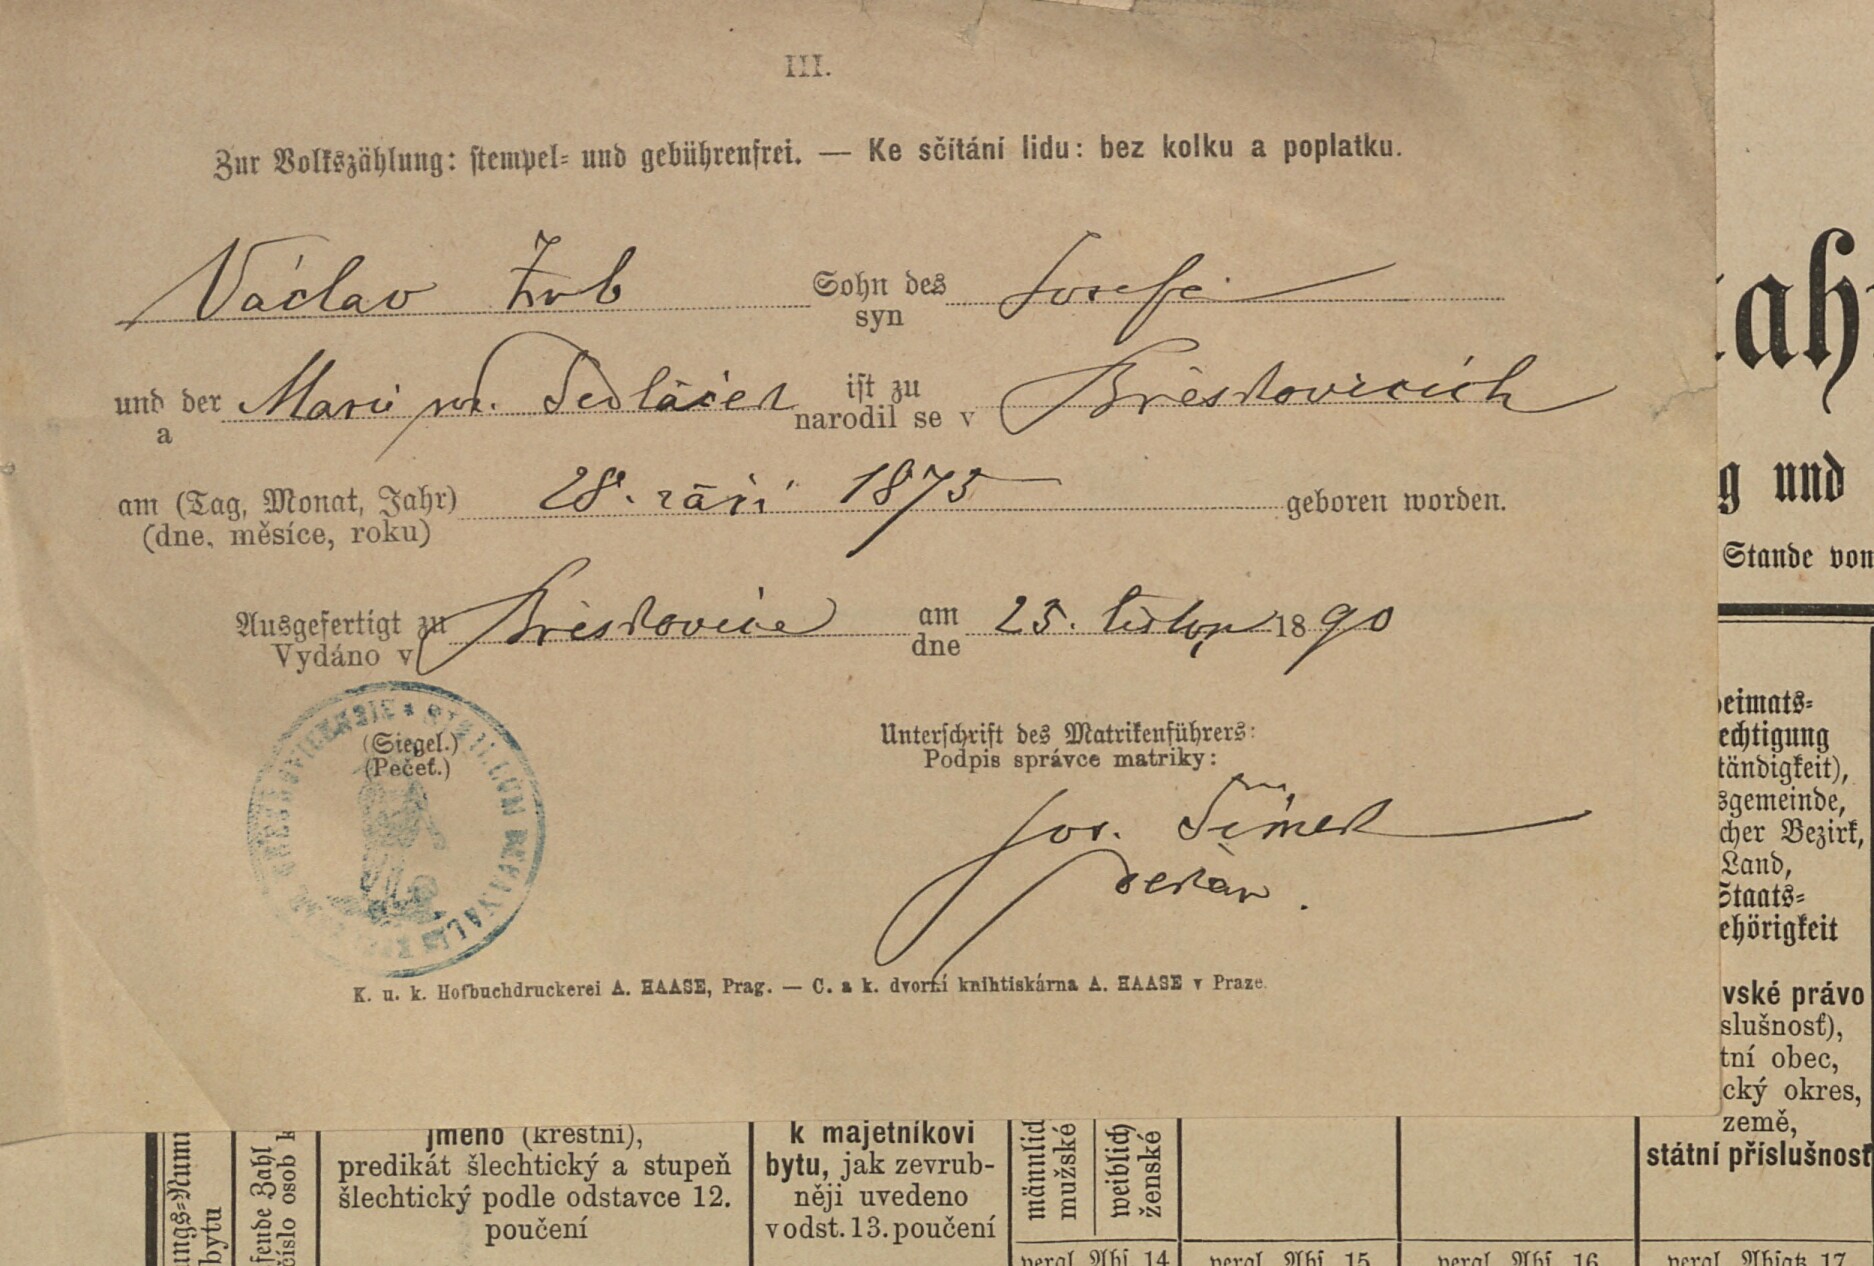 III.
Zur Volkszählung: stempel- und gebührenfrei. — Ke sčítání lidu: bez kolku a poplatku.
Václav Zrb Sohn des Josefa
syn
und der Marie roz. Sedláček ist zu Břeskovicích
a narodil se v
am (Tag, Monat, Jahr) 28. září 1875 geboren worden.
(dne, měsíce, roku)
Ausgefertigt zu Břeskovice am 25. listop 1890
Vydáno v dne
(Siegel.)
(Pečeť.)
SIGILLUM DECANALIS
Unterschrift des Matrikenführers:
Podpis správce matriky:
Jos. Šimek
děkan.
K. u. k. Hofbuchdruckerei A. HAASE, Prag. — C. a k. dvorní knihtiskárna A. HAASE v Praze.
ah
g und
Stande von
eimats-
echtigung
tändigkeit),
sgemeinde,
cher Bezirk,
Land,
Staats-
ehörigkeit
vské právo
slušnosť),
tní obec,
cký okres,
země,
státní příslušnosť
ungs-Num
bytu
fende Zahl
číslo osob
jméno (křestní),
predikát šlechtický a stupeň
šlechtický podle odstavce 12.
poučení
k majetníkovi
bytu, jak zevrub-
něji uvedeno
v odst. 13. poučení
männlich
mužské
weiblich
ženské
vergl. Abs. 14
vergl. Abs. 15
vergl. Abs. 16
vergl. Absatz 17